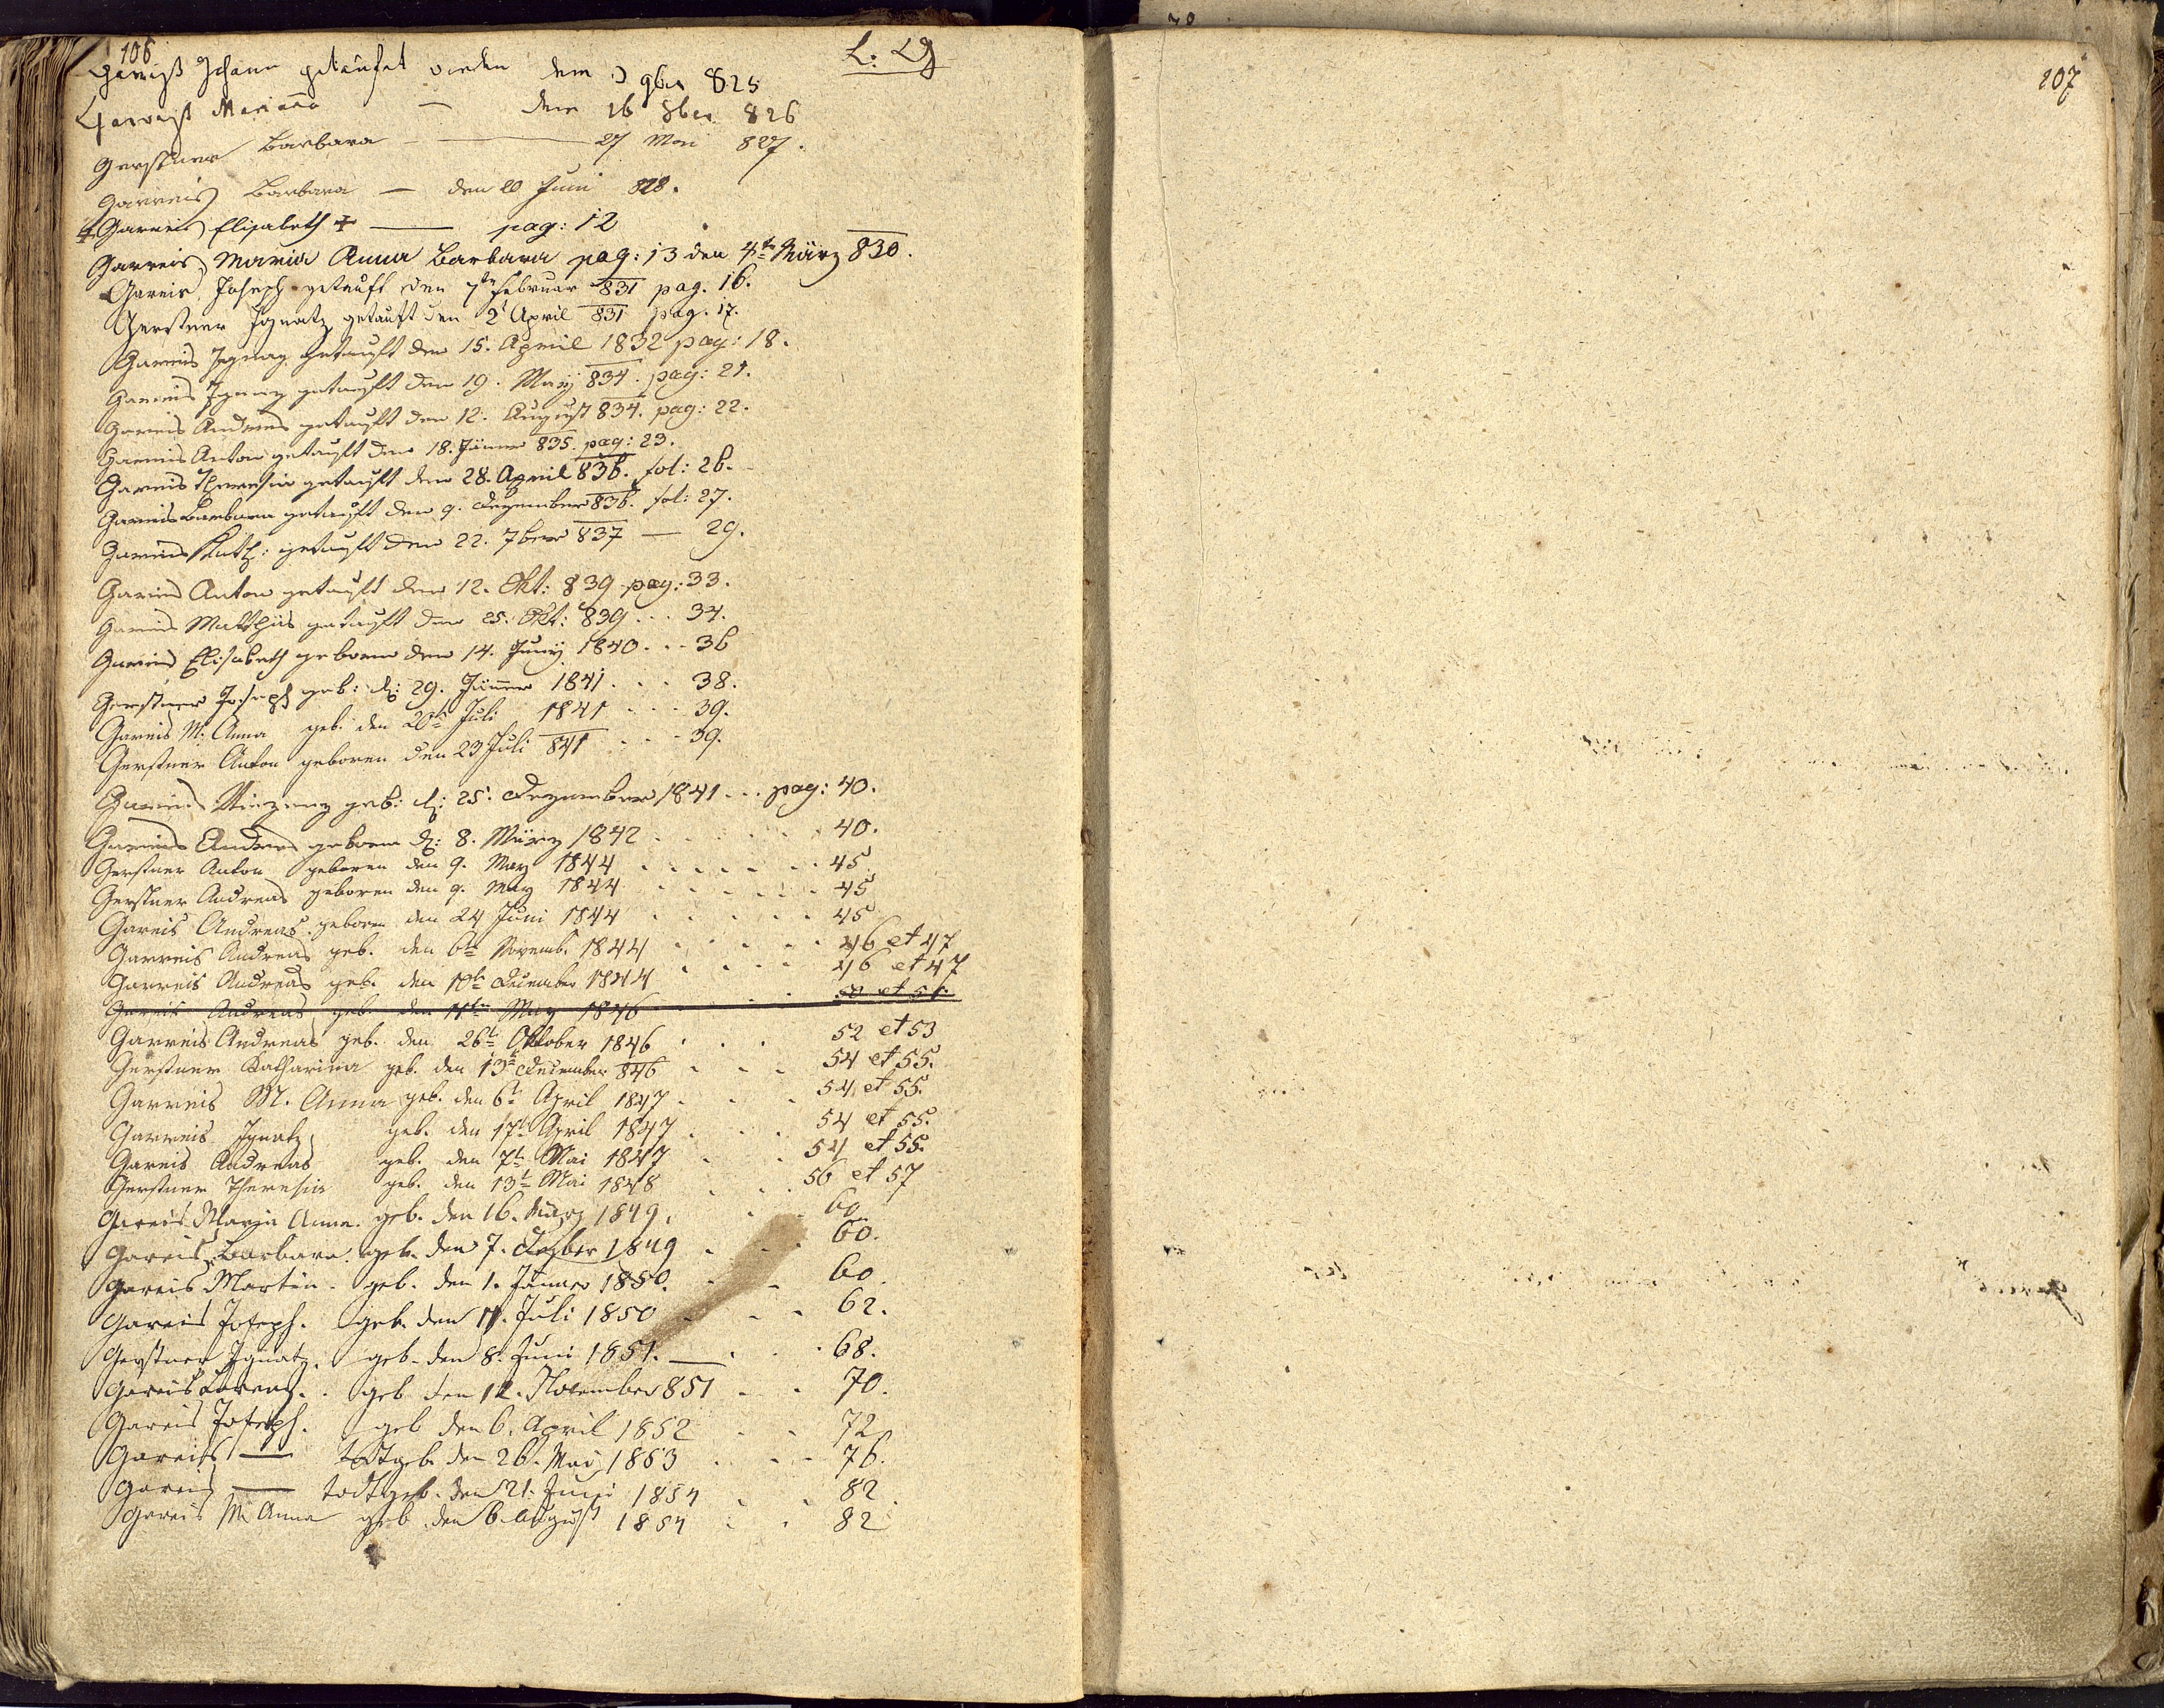 106
L: G
Gareiß Johann getaufet worden dem 3 9ber 825
Gareiß Marianna — dem 16 8ber 826
Gerstner Barbara — 27 Mai 827.
Garreis Barbara — den 20 Juni 828.
Garreis Elisabeth + — pag: 12
Garreis, Maria Anna Barbara pag: 13 den 4te März 830.
Gareis, Joseph getauft den 7te Februar 831 pag. 16.
Gerstner Ignatz getauft den 2t April 831 pag. 17.
Garreis Ignaz getauft den 15. April 1832 pag: 18.
Garreis Ignaz getauft den 19. Maÿ 834. pag: 21.
Garreis Andreas getauft den 12. August 834. pag: 22.
Garreis Anton getauft den 18. Jäner 835. pag: 23.
Garreis Theresia getauft den 28. April 836. fol: 26.
Garreis Barbara getauft den 9. Dezember 836. fol: 27.
Garreis Kath: getauft den 22. 7ber 837 — 29.
Gareis Anton getauft den 12. Okt: 839 pag: 33.
Gareis Matthäs getauft den 25. Okt: 839 . . . 34.
Gareis Elisabeth geboren den 14. Juny 1840 . . . 36
Gerstner Joseph geb: d: 29. Jänner 1841 . . . 38.
Gareis M. Anna geb. den 20te Juli 1841 . . . 39.
Gerstner Anton geboren den 23 Juli 841 . . . 39.
Gareis Vinzenz geb: d: 25. Dezember 1841 . . . pag: 40.
Gareis Andreas geboren d: 8. März 1842 . . . 40.
Gerstner Anton geboren den 9. May 1844 . . . 45
Gerstner Andreas geboren den 9. May 1844 . . . 45
Gareis Andreas geboren den 24 Juni 1844 . . . 45
Garreis Andreas geb. den 6te Novemb. 1844 . . . 46 et 47
Garreis Andreas geb. den 10te December 1844 . . . 46 et 47
Gareis Andreas geb. den 11ten May 1846 . . . 50 et 51.
Garreis Andreas geb. den 26t Oktober 1846 . . . 52 et 53
Gerstner Katharina geb. den 13t December 846 . . . 54 et 55.
Garreis M. Anna geb. den 6t April 1847 . . . 54 et 55.
Garreis Ignatz geb. den 17t April 1847 . . . 54 et 55.
Gareis Andreas geb. den 7t Mai 1847 . . . 54 et 55.
Gerstner Theresia geb. den 13t Mai 1848 . . . 56 et 57
Gareis Maria Anna. geb. den 16. März 1849. . . 60.
Gareis Barbara. geb. den 7. Dezber 1849 . . . 60.
Gareis Martin. geb. den 1. Jänner 1850. . . 60.
Gareis Joseph. geb. den 11. Juli 1850 . . . 62.
Gerstner Ignatz. geb. den 8. Juni 1851. — . . . 68.
Gareis Lorenz. . geb den 12. November 851 . . . 70.
Gareis Joseph. geb den 6. April 1852 . . . 72
Gareis — todtgeb. den 26. Mai 1853 . . . 76.
Gareis — todtgeb. den 21. Juni 1854 . . . 82.
Gareis M. Anna geb. den 6. August 1854 . . . 82
107